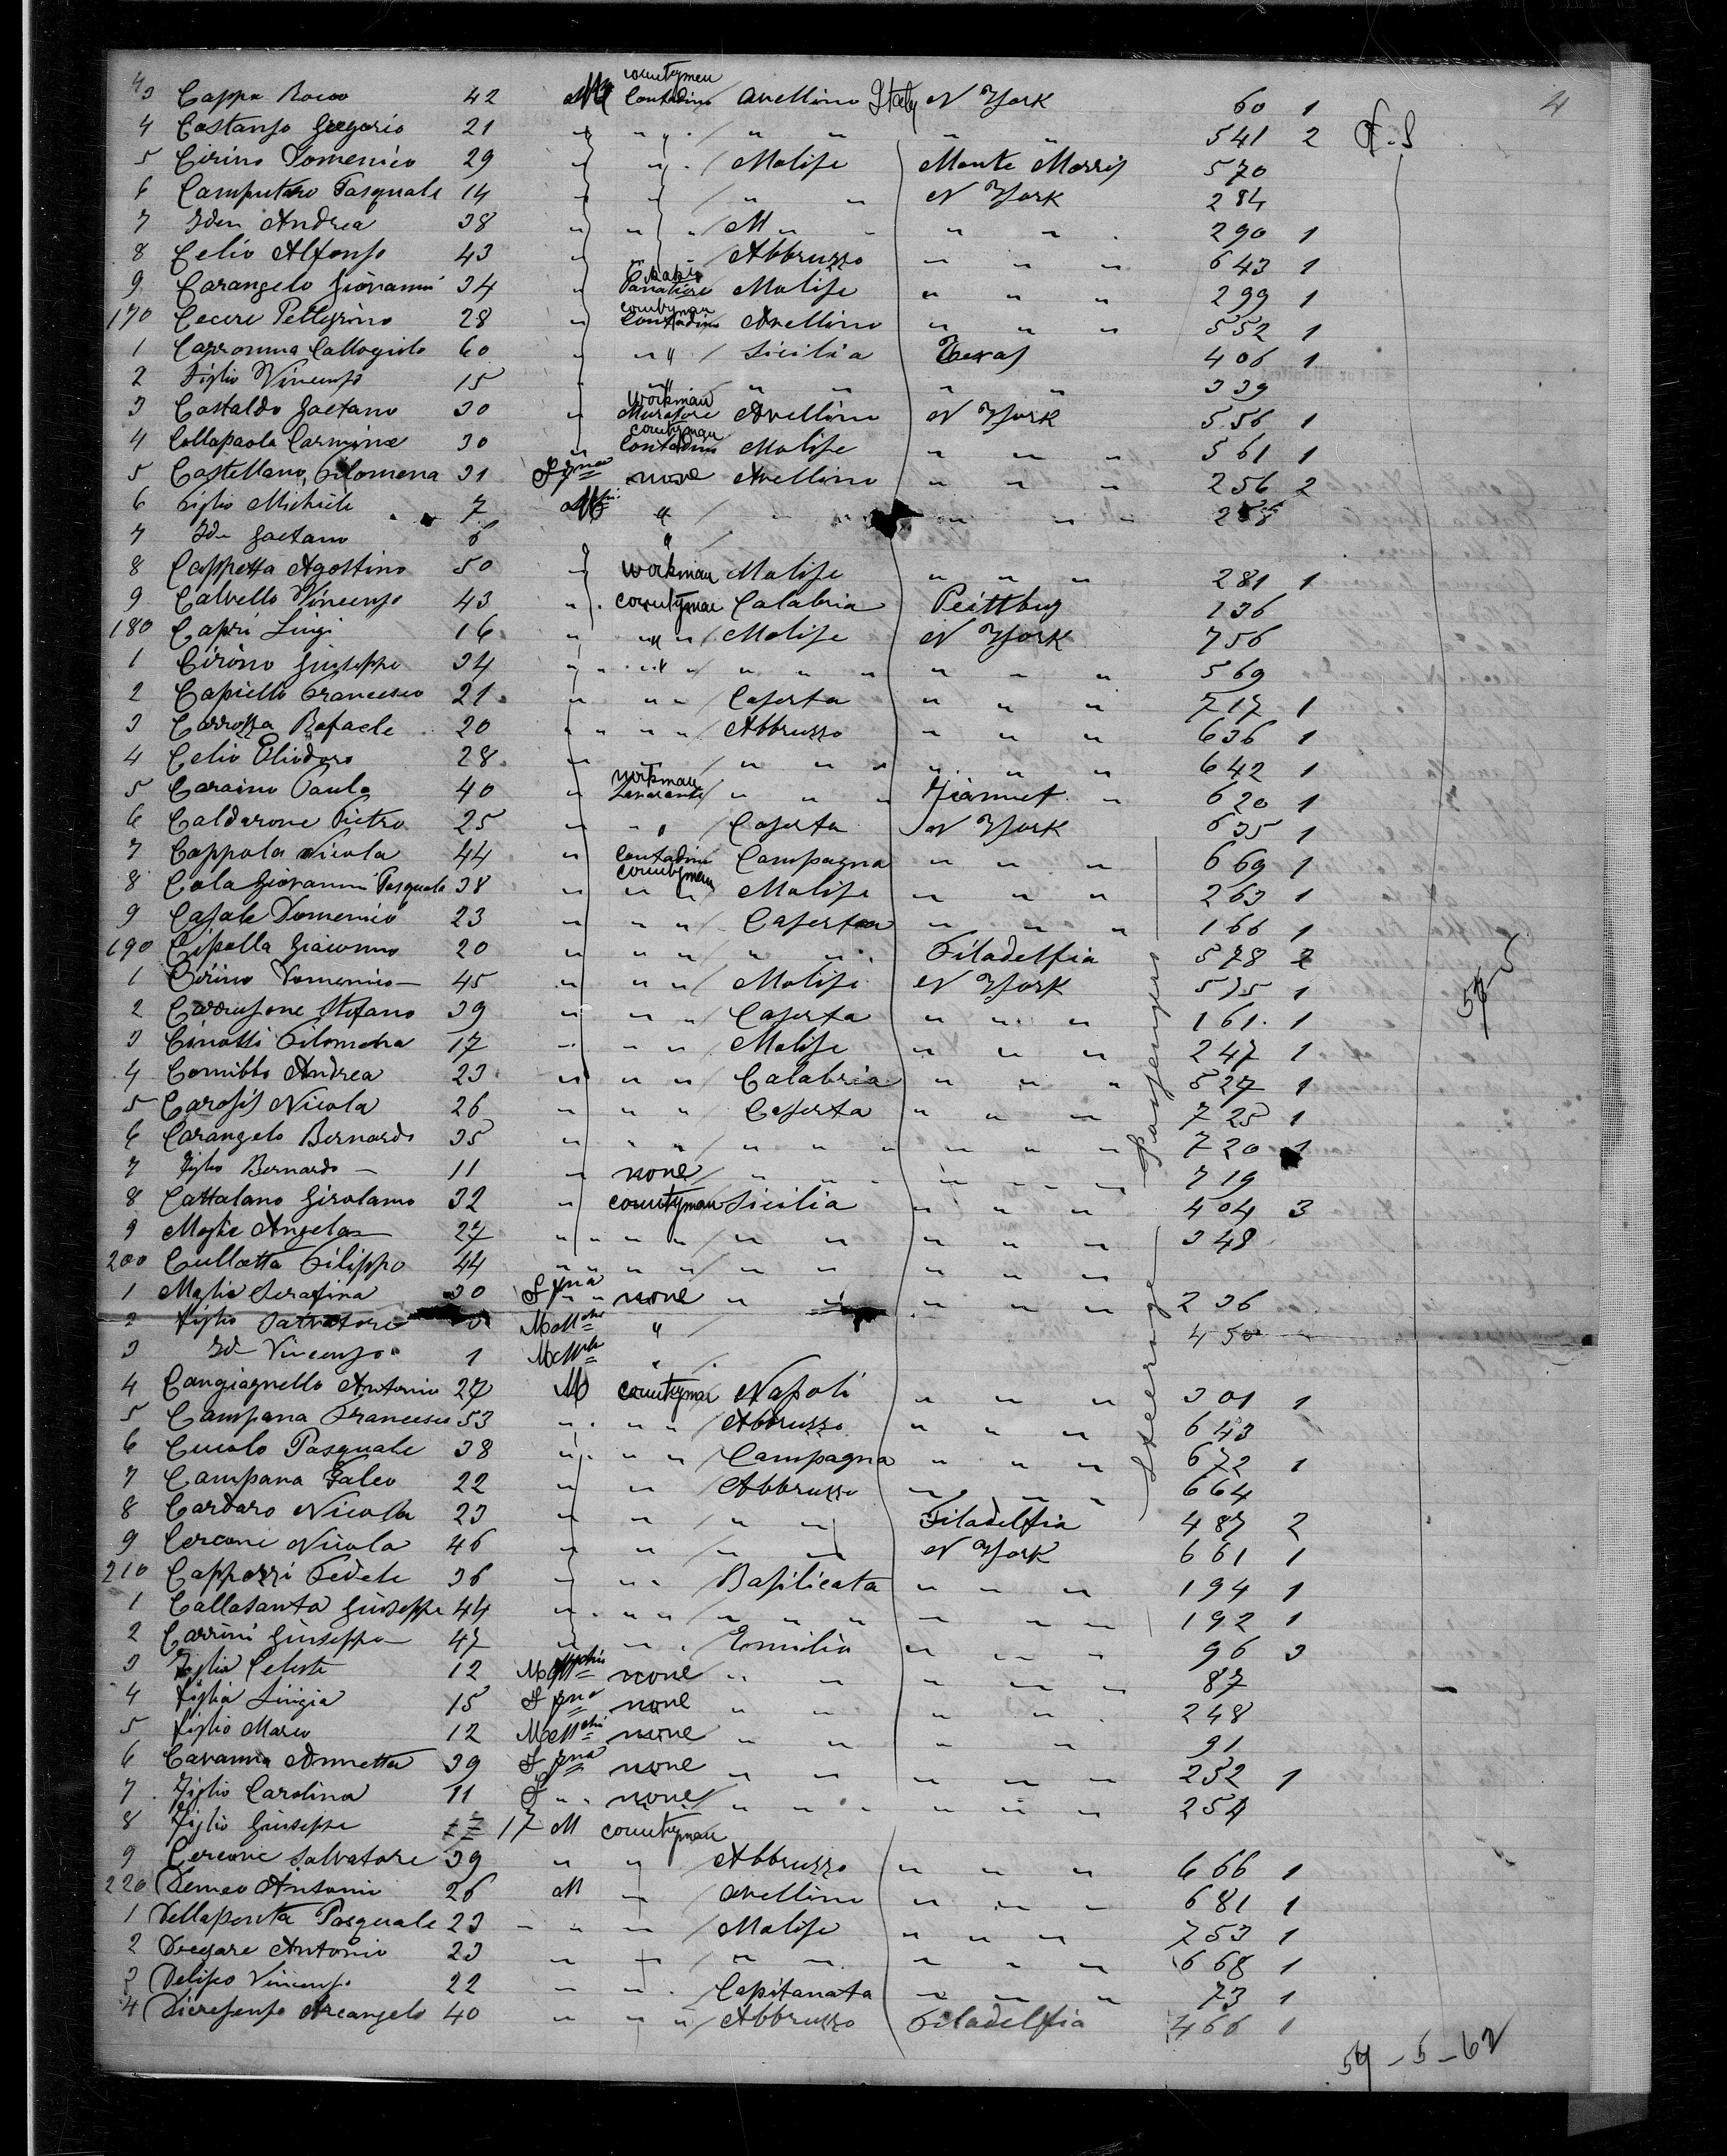 4
43 Cappa Rocco 42 M countrymen Contadino Avellino Italy N York 60 1
4 Costanzo Gregorio 21 " " " " " " " 541 2 N.S
5 Cirino Domenico 29 " " Molise Monte Morris 570
6 Camputaro Pasquale 14 " " " " N York 284
7 Iden Andrea 38 " " " M " " " " 290 1
8 Celio Alfonso 43 " Abbruzzo " " " 643 1
9 Carangelo Giovanni 34 " Panatiere Molise " " " 299 1
170 Cecere Pellegrino 28 " countryman Contadino Avellino " " " 552 1
1 Capronna Callogirlo 60 " " " Sicilia Texas 406 1
2 Figlio Vincenzo 15 " " " " " " 339
3 Castaldo Gaetano 30 " workman Muratore Avellino N York 556 1
4 Collapaola Carmine 30 " countryman Contadino Molise " " " 561 1
5 Castellano Filomena 31 F none Avellino " " " 256 2
6 Figlio Michiele 7 M " " " " " " 258
7 Id Gaetano 6 "
8 Cappetta Agostino 50 " workman Molise " " " 281 1
9 Calvello Vincenzo 43 " countryman Calabria Peittbug 136
180 Capri Luigi 16 " " " Molise N York 756
1 Cirino Giuseppe 34 " " " " " " " " " 569
2 Capiello Francesco 21 " " " Caserta " " " 717 1
3 Carrozza Rafaele 20 " " " " Abbruzzo " " " 636 1
4 Celio Eliodoro 28 " " " " " " " " 642 1
5 Caraino Paulo 40 " workman Lavorante " " " Jiannet " 620 1
6 Caldarone Pietro 25 " " " Caserta N York 635 1
7 Coppola Nicola 44 " Contadino countryman Campagna " " " 669 1
8 Cola Giovanni Pasquale 38 " " " Molise " " " 263 1
9 Casale Domenico 23 " " " Caserta " " " 166 1
190 Cipolla Giacomo 20 " " " " " Filadelfia 578 2
1 Cirino Domenico 45 " " " Molise N York 575 1
2 Carrusone Stefano 39 " " " Caserta " " " 161 1
3 Cinotti Filomena 17 " " " Molise " " " 247 1
4 Comibbo Andrea 23 " " " Calabria " " " 527 1
5 Carosis Nicola 26 " " " Caserta " " " 725 1
6 Carangelo Bernardo 35 " " " " " " " " " 720 1
7 Figlio Bernardo 11 " none " " " " " " 719
8 Cattalano Girolamo 32 " countryman Sicilia " " " 404 3
9 Moglie Angela 27 " " " " " " " " " 348
200 Cullotta Filippo 44 " " " " " " " " "
1 Moglie Serafina 30 F none " " " " " 236
2 Figlio Salvatore M " 450
3 Id Vincenzo 1 M "
4 Cangiagnello Antonio 27 M countryman Napoli " " " 301 1
5 Campana Francesco 53 " " " Abbruzzo " " " 643
6 Cuculo Pasquale 38 " " " Campagna " " " 672 1
7 Campana Falco 22 " " Abbruzzo " " " 664
8 Cardaro Nicola 23 " " " " Filadelfia 487 2
9 Cercone Nicola 46 " " " " N York 661 1
210 Capposzi Fedele 36 " " " Basilicata " " " 194 1
1 Collasanta Giuseppe 44 " " " " " " " " " 192 1
2 Carrini Giuseppe 47 " " " Emilia " " " 96 3
3 Figlia Celeste 12 M none " " " " " 87
4 Figlia Luigia 15 F none " " " " " 248
5 Figlio Marco 12 M none " " " " 91
6 Cavanna Annetta 39 F none " " " " " 252 1
7 Figlio Carolina 11 F " none " " " " " " 254
8 Figlio Giuseppe 17 M countryman
9 Cercone Salvatore 39 " " Abbruzzo " " " 666 1
220 Demeo Antonio 26 M " Avellino " " " 681 1
1 Dellaposta Pasquale 23 " " " Molise " " " 753 1
2 Diegare Antonio 23 " " " " " " " 668 1
3 Delisco Vincenzo 22 " " Capitanata " " " 73 1
4 Dicresenzo Arcangelo 40 " " " Abbruzzo Filadelfia 466 1
Steerage Passengers
57 5
57 - 5 - 62